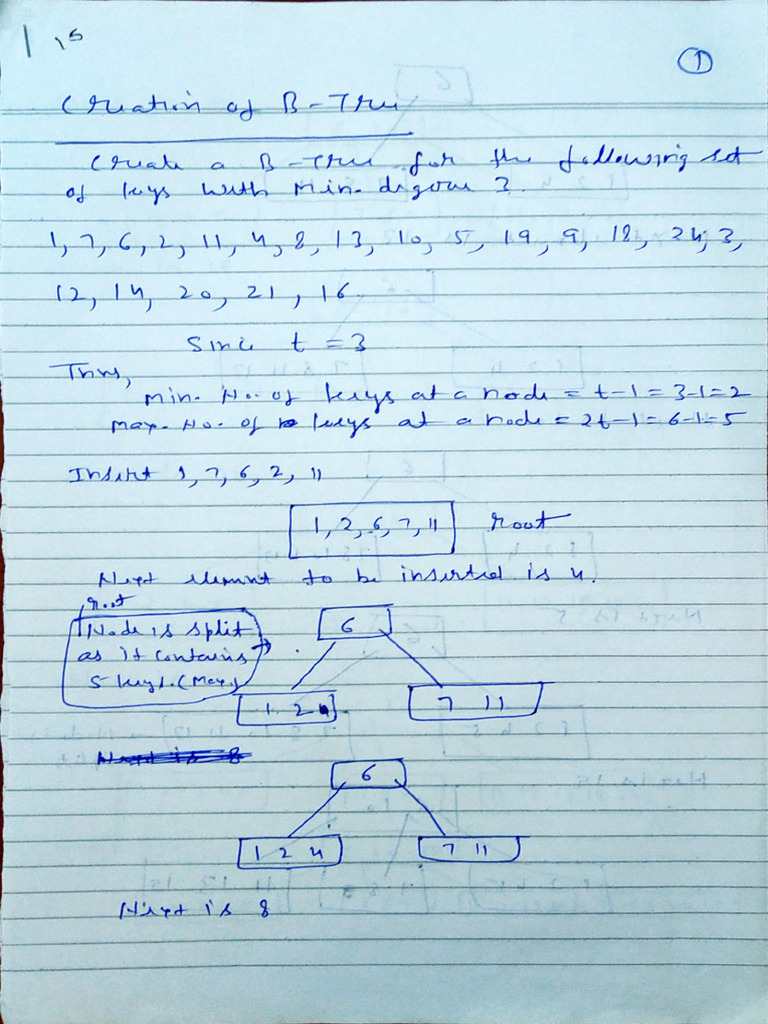 1 15
1
Creation of B-Tree
Create a B-Tree for the following set
of keys with Min. degree 3.
1, 7, 6, 2, 11, 4, 8, 13, 10, 5, 19, 9, 18, 24, 3,
12, 14, 20, 21, 16
Since t = 3
Thus,
min. No. of keys at a node = t-1 = 3-1=2
max. No. of keys at a node = 2t-1=6-1=5
Insert 1, 7, 6, 2, 11
1, 2, 6, 7, 11 root
Next element to be inserted is 4.
root
Node is split
as it contains
5 keys. (Max.)
6
1 2 4
7 11
6
1 2 4
7 11
Next is 8